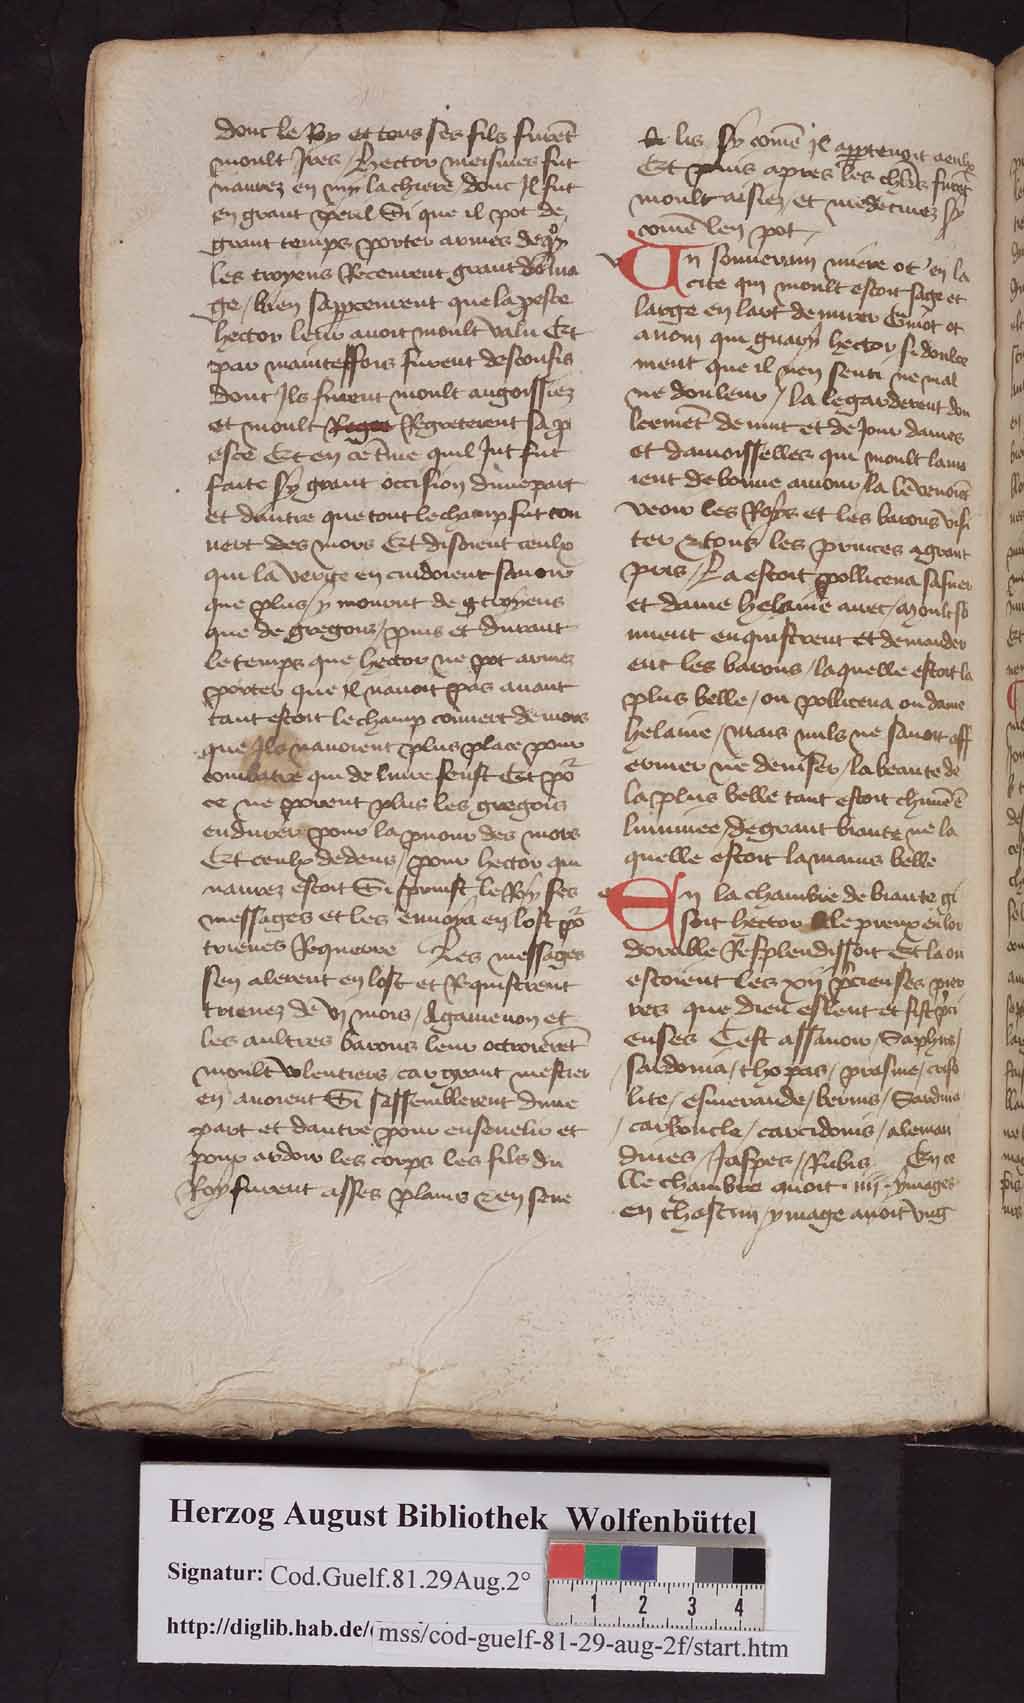 donc le Roy et tous ses fils furēt
moult Jres / Hector meismes fut
naurez en my la chiere donc Jl fut
en grant peril Si que il pot de
grant temps porter armes de qͦy
les troyens Receurent grant dōma
ge / bien sapperceurent que la perte
hector leur auoit moult valu Et
par mainteffois furent desconfis
dont Jls furent moult angoissiez
et moult Regreterent sa p
esce Et en ce tme quil Jut fut
faite sy grant occision dune part
et dautre que tout le champ fut cou
uert des mors Et disoient ceulx
qui la verite en cuidoient sauoir
que plus / y mourut de troyens
que de gregois / puis et durant
le temps que hector ne pot armez
porter que Jl nauoit pas auant
tant estoit le champ couuert de mors
que Jls nauoient plus place pour
combatre qui de liure feust Et poͬ
ce ne porent plus les gregois
endurer pour la puour des mors
Et ceulx dedens / pour hector qui
naurez estoit Si prinst le Roy ses
messages et les enuoya en lost poͬ
trieues Requerre Les messages
sen alerent en lost et Requistrent
trieuez de vj mois / Agamenon et
les aultres barons leur octroierēt
moult volentiers car grant mestier
en auoient Si sassemblerent dune
part et dautre pour enseuelir et
pour ardoir les corps les fils du
Roy furent asses plains et en seue
lis sy comē Jl appertenoit a eulx
Et puis apres les chlrs furēt
moult aisiez et medecinez sy
comē len pot /
Un souuerain miere ot en la
cite qui moult estoit sage et
large en lart de mirer Guiot ot
a nom qui guary hector si doulce
ment que il nen senti ne mal
ne douleur / la le garderent dou
lcemēt de nuit et de Jour dames
et damoisselles qui moult lamo
ient de bonne amour / la le venoiēt
veoir les Roys et les barons visi
ter et tous les princes a grant
pris / La estoit pollicena sa suer
et dame helaine auec / moult so
uuent enquistrent et demander
ent les barons / laquelle estoit la
plus belle / ou pollicena ou dame
helaine / mais nuls ne sauoit aff
ermer ne deuiser / la beaute de
la plus belle tant estoit chūnē ē
luminee / de grant biaute ne la
quelle estoit la mains belle
En la chambre de biaute gi
soit hector le preux ou lor
dorable Resplendissoit Et la ou
estoient les xij pcieuses pier
res que dieu esleut et fist pci
euses Cest assauoir / Saphirs /
sardonia / thopas / prasme / criso
lite / esmeraude / berins / Sardina
/ carboncle / carcidonis / aleman
dines / Jaspes / Rubis En ce
lle chambre auoit .iiij. ymages
en chascun / ymage auoit vng
Herzog August Bibliothek Wolfenbüttel
Signatur: Cod.Guelf.81.29Aug.2°
1 2 3 4
http://diglib.hab.de/ mss/cod-guelf-81-29-aug-2f/start.htm